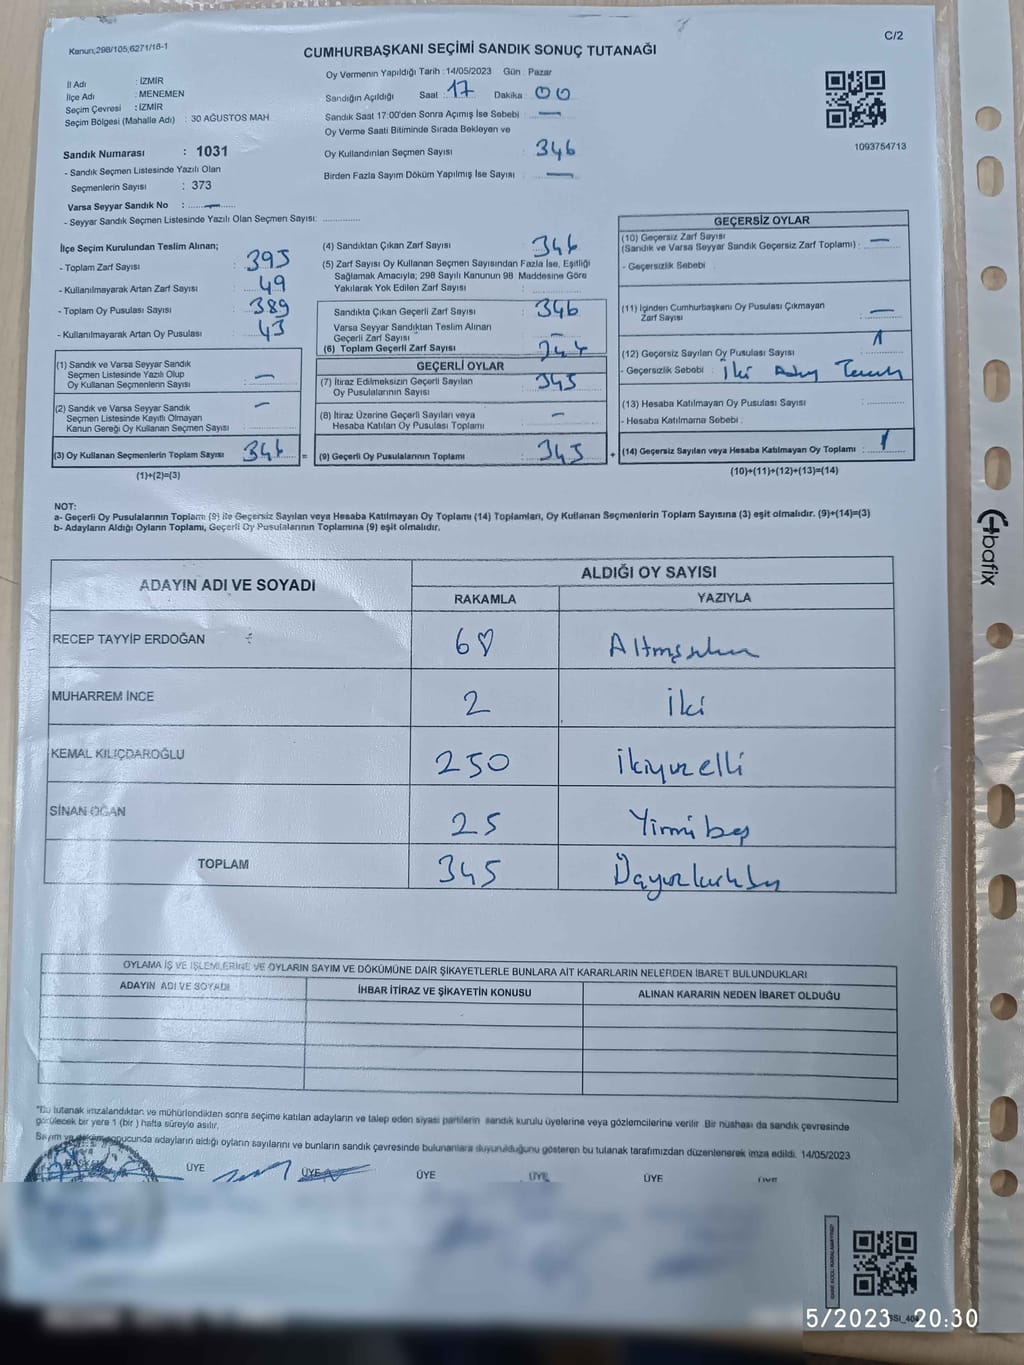 Kanun;298/105,6271/18-1
C/2
CUMHURBAŞKANI SEÇİMİ SANDIK SONUÇ TUTANAĞI
İl Adı : İZMİR
İlçe Adı : MENEMEN
Seçim Çevresi : İZMİR
Seçim Bölgesi (Mahalle Adı) : 30 AĞUSTOS MAH
Sandık Numarası : 1031
- Sandık Seçmen Listesinde Yazılı Olan
Seçmenlerin Sayısı : 373
Varsa Seyyar Sandık No : —
- Seyyar Sandık Seçmen Listesinde Yazılı Olan Seçmen Sayısı:
Oy Vermenin Yapıldığı Tarih :14/05/2023 Gün : Pazar
Sandığın Açıldığı Saat : 17 Dakika 00
Sandık Saat 17:00'den Sonra Açımış İse Sebebi : —
Oy Verme Saati Bitiminde Sırada Bekleyen ve
Oy Kullandırılan Seçmen Sayısı : 346
Birden Fazla Sayım Döküm Yapılmış İse Sayısı : —
1093754713
İlçe Seçim Kurulundan Teslim Alınan;
- Toplam Zarf Sayısı : 395
- Kullanılmayarak Artan Zarf Sayısı : 49
- Toplam Oy Pusulası Sayısı : 389
- Kullanılmayarak Artan Oy Pusulası : 43
(1) Sandık ve Varsa Seyyar Sandık
Seçmen Listesinde Yazılı Olup
Oy Kullanan Seçmenlerin Sayısı : —
(2) Sandık ve Varsa Seyyar Sandık
Seçmen Listesinde Kayıtlı Olmayan
Kanun Gereği Oy Kullanan Seçmen Sayısı : —
(3) Oy Kullanan Seçmenlerin Toplam Sayısı : 346 =
(1)+(2)=(3)
(4) Sandıktan Çıkan Zarf Sayısı : 346
(5) Zarf Sayısı Oy Kullanan Seçmen Sayısından Fazla İse, Eşitliği
Sağlamak Amacıyla; 298 Sayılı Kanunun 98 Maddesine Göre
Yakılarak Yok Edilen Zarf Sayısı :
Sandıkta Çıkan Geçerli Zarf Sayısı : 346
Varsa Seyyar Sandıktan Teslim Alınan
Geçerli Zarf Sayısı : —
(6) Toplam Geçerli Zarf Sayısı :
GEÇERLİ OYLAR
(7) İtiraz Edilmeksizin Geçerli Sayılan
Oy Pusulalarının Sayısı : 345
(8) İtiraz Üzerine Geçerli Sayılan veya
Hesaba Katılan Oy Pusulası Toplamı : —
(9) Geçerli Oy Pusulalarının Toplamı : 345 +
GEÇERSİZ OYLAR
(10) Geçersiz Zarf Sayısı
(Sandık ve Varsa Seyyar Sandık Geçersiz Zarf Toplamı) : —
- Geçersizlik Sebebi :
(11) İçinden Cumhurbaşkanı Oy Pusulası Çıkmayan
Zarf Sayısı : —
(12) Geçersiz Sayılan Oy Pusulası Sayısı : 1
- Geçersizlik Sebebi : İki
(13) Hesaba Katılmayan Oy Pusulası Sayısı :
- Hesaba Katılmama Sebebi :
(14) Geçersiz Sayılan veya Hesaba Katılmayan Oy Toplamı : 1
(10)+(11)+(12)+(13)=(14)
NOT:
a- Geçerli Oy Pusulalarının Toplamı (9) ile Geçersiz Sayılan veya Hesaba Katılmayan Oy Toplamı (14) Toplamları, Oy Kullanan Seçmenlerin Toplam Sayısına (3) eşit olmalıdır. (9)+(14)=(3)
b- Adayların Aldığı Oyların Toplamı, Geçerli Oy Pusulalarının Toplamına (9) eşit olmalıdır.
ADAYIN ADI VE SOYADI
ALDIĞI OY SAYISI
RAKAMLA YAZIYLA
RECEP TAYYİP ERDOĞAN 68
MUHARREM İNCE 2 İki
KEMAL KILIÇDAROĞLU 250 İkiyüzelli
SİNAN OĞAN 25 Yirmi beş
TOPLAM 345
OYLAMA İŞ VE İŞLEMLERİNE VE OYLARIN SAYIM VE DÖKÜMÜNE DAİR ŞİKAYETLERLE BUNLARA AİT KARARLARIN NELERDEN İBARET BULUNDUKLARI
ADAYIN ADI VE SOYADI İHBAR İTİRAZ VE ŞİKAYETİN KONUSU ALINAN KARARIN NEDEN İBARET OLDUĞU
"Bu tutanak imzalandıktan ve mühürlendikten sonra seçime katılan adayların ve talep eden siyasi partilerin sandık kurulu üyelerine veya gözlemcilerine verilir Bir nüshası da sandık çevresinde
görülecek bir yere 1 (bir) hafta süreyle asılır.
Sayım ve döküm sonucunda adayların aldığı oyların sayılarını ve bunların sandık çevresinde bulunanlara duyurulduğunu gösteren bu tutanak tarafımızdan düzenlenerek imza edildi. 14/05/2023
ÜYE ÜYE ÜYE ÜYE ÜYE ÜYE
5/2023 20:30
bafix